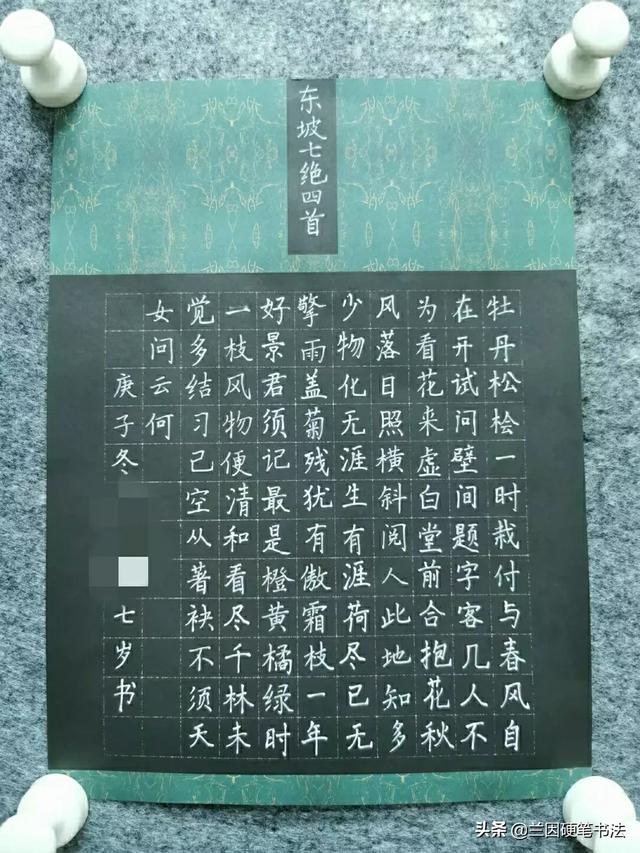 东坡七绝四首
牡丹松桧一时栽付与春风自
在开试问壁间题字客几人不
为看花来虚白堂前合抱花秋
风落日照横斜阅人此地知多
少物化无涯生有涯荷尽已无
擎雨盖菊残犹有傲霜枝一年
好景君须记最是橙黄橘绿时
一枝风物便清和看尽千林未
觉多结习已空从著袂不须天
女问云何
庚子冬 七岁书
头条 @兰因硬笔书法